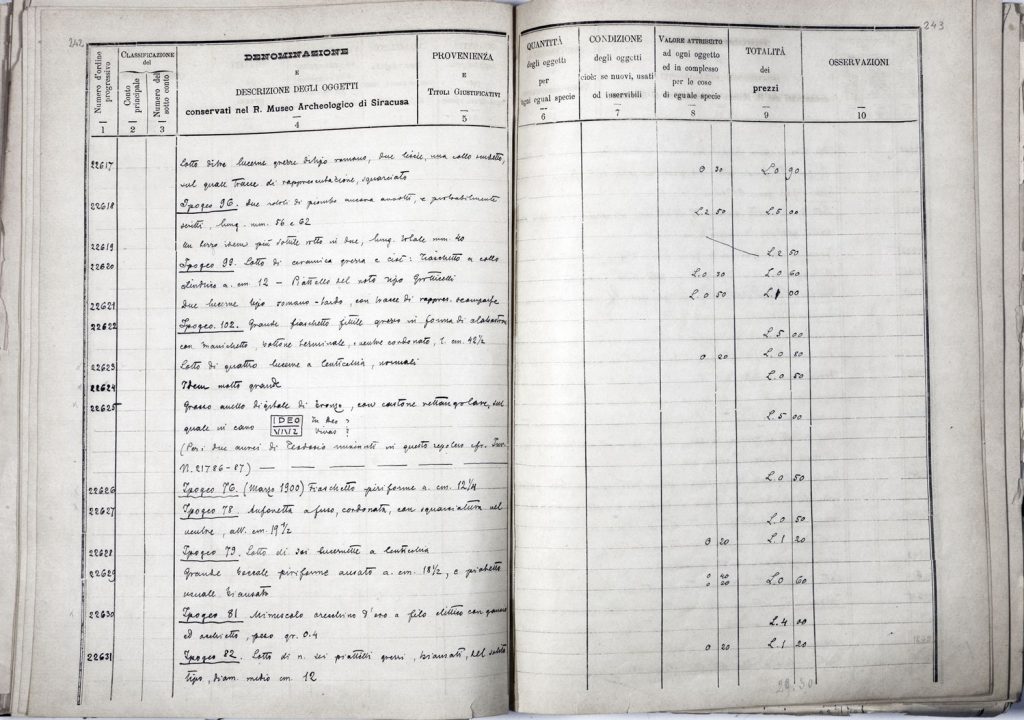 242
Numero d'ordine progressivo
CLASSIFICAZIONE del
Conto principale
Numero del sotto conto
DENOMINAZIONE
E
DESCRIZIONE DEGLI OGGETTI
conservati nel R. Museo Archeologico di Siracusa
PROVENIENZA
E
TITOLI GIUSTIFICATIVI
1 2 3 4 5
22617 Lotto di tre lucerne grezze di tipo romano, due liscie, una collo
sul quale tracce di rappresentazione, squarciato
22618 Ipogeo 96. Due rotoli di piombo ancora avvolti, e probabilmente
scritti, lung. mm. 56 e 62
22619 Un terzo idem più sottile rotto in due, lung. totale mm. 40
22620 Ipogeo 99. Lotto di ceramica grezza e cioè: fiaschetto a collo
cilindrico a. cm. 12 — Piattello del noto tipo Grotticelli
22621 Due lucerne tipo romano-tardo, con tracce di rappres. scomparse
22622 Ipogeo 102. Grande fiaschetto fittile grezzo in forma di alabastron
con manichetto, bottone terminale, e ventre cordonato, l. cm. 42½
22623 Lotto di quattro lucerne a lenticchia, normali
22624 Idem molto grande
22625 Grosso anello digitale di bronzo, con castone rettangolare, sul
quale in cavo IDEO In Deo ?
VIVZ Vivas ?
(Per i due aurei di Teodosio rinvenuti in questo sepolcro cfr. Inv.
N. 21786-87) — — — —
22626 Ipogeo 76. (Marzo 1900) Fiaschetto piriforme a. cm. 12¼
22627 Ipogeo 78. Anforetta a fuso, cordonata, con squarciatura nel
ventre, alt. cm. 19½
22628 Ipogeo 79. Lotto di sei lucernette a lenticchia
22629 Grande boccale piriforme ansato a. cm. 18½, e piattello
usuale biansato
22630 Ipogeo 81 Minuscolo orecchino d'oro a filo elittico con
ed occhietto, peso gr. 0.4
22631 Ipogeo 82. Lotto di n. sei piattelli grezzi, biansati, del solito
tipo, diam. medio cm. 12
243
QUANTITÀ
degli oggetti
per
ogni egual specie
CONDIZIONE
degli oggetti
cioè: se nuovi, usati
od inservibili
VALORE ATTRIBUITO
ad ogni oggetto
ed in complesso
per le cose
di eguale specie
TOTALITÀ
dei
prezzi
OSSERVAZIONI
6 7 8 9 10
0 30 L. 0 90
L. 2 50 L. 5 00
L. 2 50
L. 0 30 L. 0 60
L. 0 50 L. 1 00
L. 5 00
0 20 L. 0 80
L. 0 50
L. 5 00
L. 0 50
L. 0 50
0 20 L. 1 20
0 40
0 20 L. 0 60
L. 4 00
0 20 L. 1 20